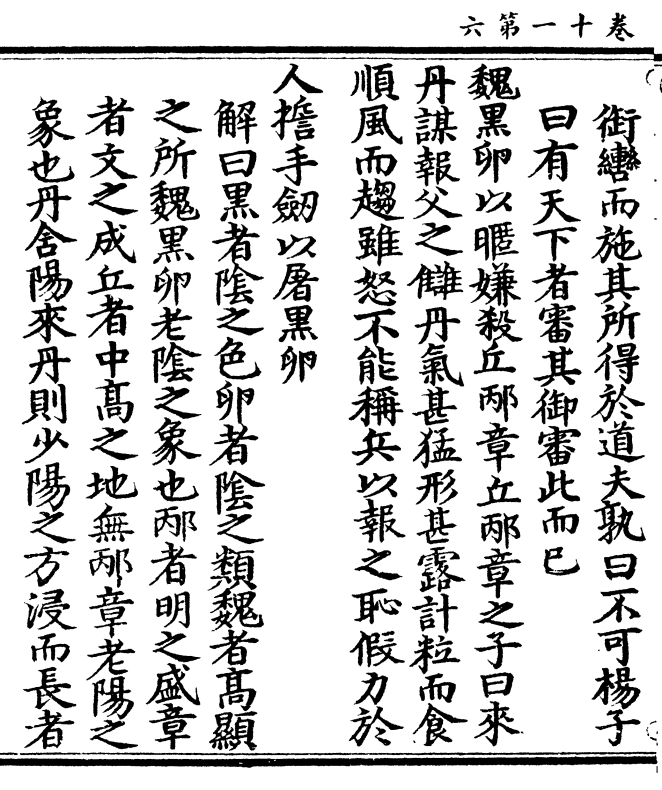 卷十一第六
銜轡而施其所得於道夫孰曰不可楊子
曰有天下者審其御審此而已
魏黑卵以暱嫌殺丘邴章丘邴章之子曰來
丹謀報父之讎丹氣甚猛形甚露計粒而食
順風而趨雖怒不能稱兵以報之恥假力於
人擔手劒以屠黑卵
解曰黑者陰之色卵者陰之類魏者髙顯
之所魏黑卵老陰之象也邴者明之盛章
者文之成丘者中髙之地無邴章老陽之
象也丹舍陽來丹則少陽之方浸而長者